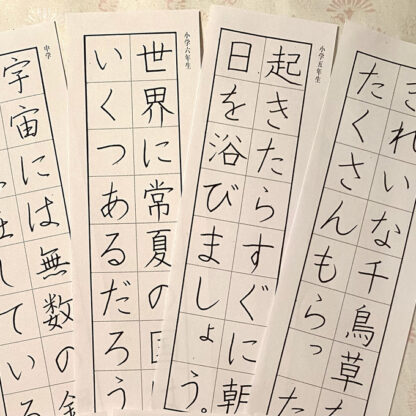 きれいな千鳥草
たくさんもらった
小学五年生
起きたらすぐに朝
日を浴びましょう。
小学六年生
世界に常夏の国
いくつあるだろう
中学
宇宙には無数の
している